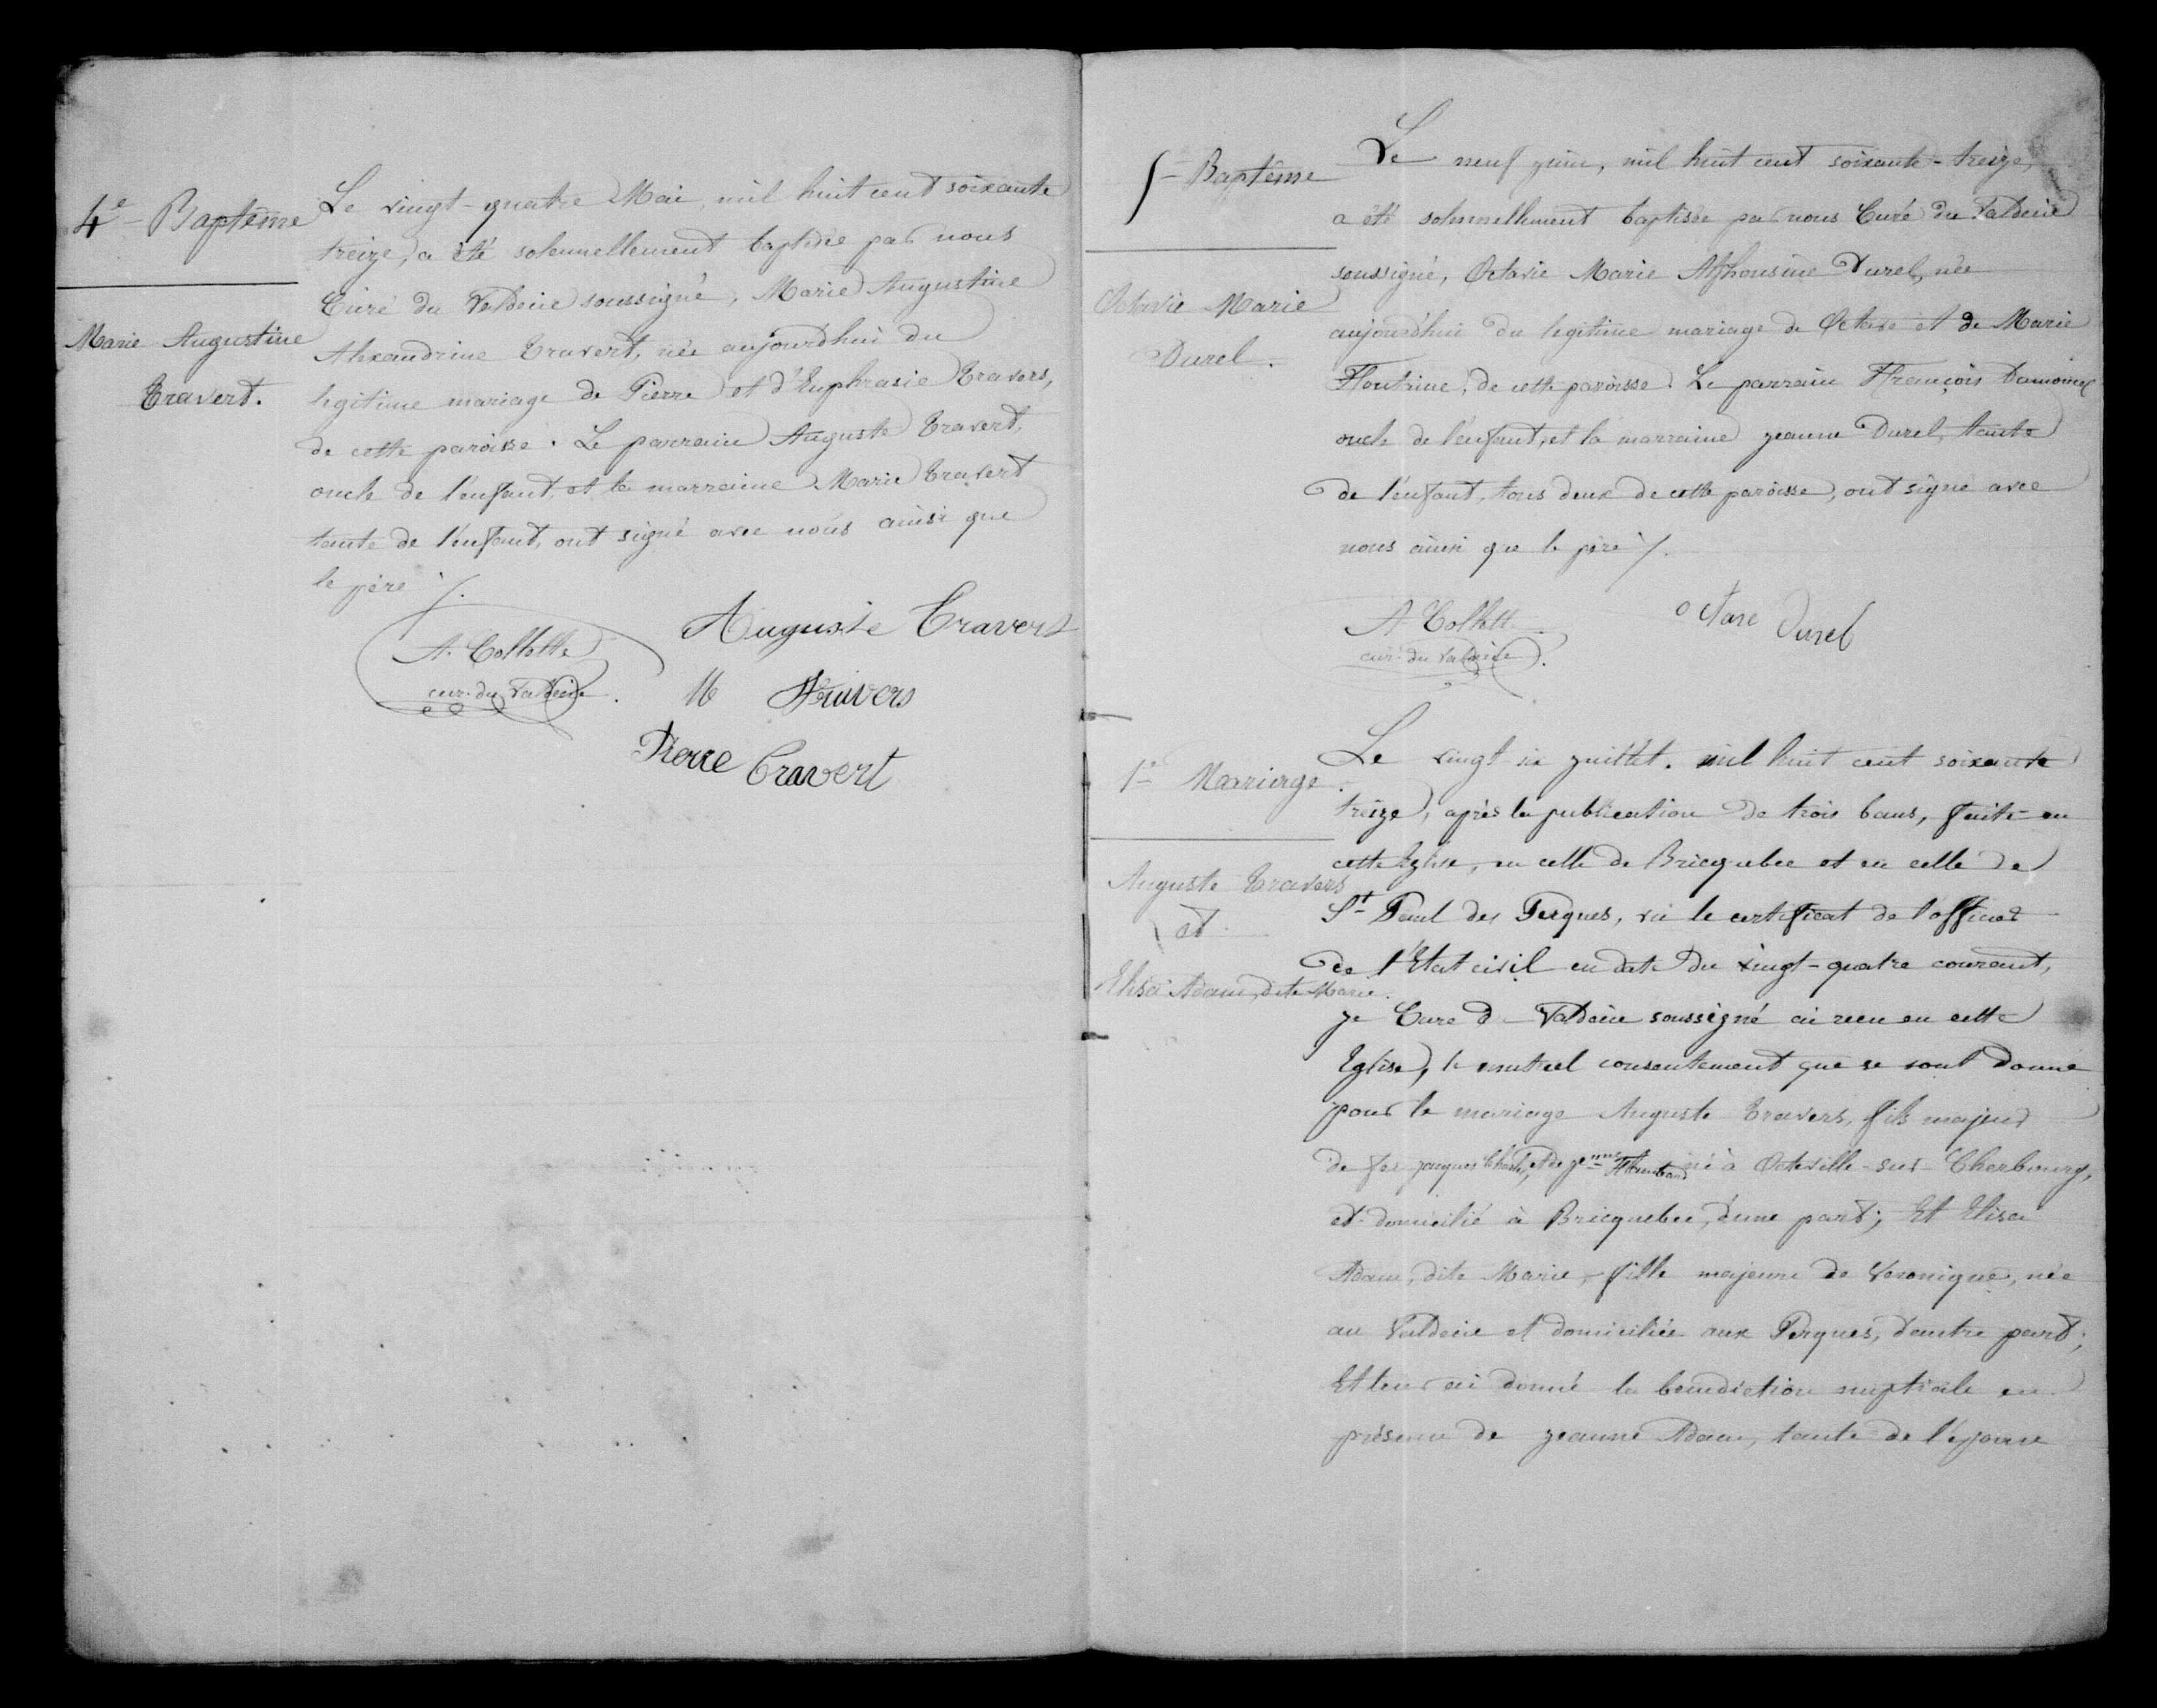 4e Baptême
Marie Augustine
Travert.
Le vingt-quatre Mai, mil huit cent soixante
treize, a été solennellement baptisée par nous
Curé du Valdécie soussigné, Marie Augustine
Alexandrine Travert, née aujourdhui du
legitime mariage de Pierre et d'Euphrasie Travers,
de cette paroisse. Le parrain Auguste Travert,
oncle de l'enfant, et la marraine Marie Travert
tante de l'enfant, ont signé avec nous ainsi que
le père ./.
Auguste Travert
A. Collette
cur. du Valdécie.
M Travers
Pierre Travert
5 Baptême
Octavie Marie
Durel.
Le neuf juin, mil huit cent soixante-treize,
a été solennellement baptisée par nous Curé du Valdécie
soussigné, Octavie Marie Alphonsine Durel, née
aujourd'hui du legitime mariage de Octave et de Marie
de cette paroisse. Le parrain François
oncle de l'enfant, et la marraine jeanne Durel, tante
de l'enfant, tous deux de cette paroisse, ont signé avec
nous ainsi que le père ./.
A Collette
cur. du Valdécie.
octave Durel
1e Mariage.
Auguste Travers
et
Elisa Adam, dite Marie.
Le vingt six juillet. mil huit cent soixante
treize, après la publication de trois bans, faite en
cette Eglise, en celle de Bricquebec et en celle de
St Paul des Perques, vu le certificat de l'officier
de l'Etat civil en date du vingt-quatre courant,
je Curé d Valdécie soussigné ai reçu en cette
Eglise, le mutuel consentement que se sont donné
pour le mariage Auguste Travers, fils majeur
de feu jacques Charles, et de né à Octeville-sur-Cherbourg,
et domicilié à Bricquebec, d'une part; Et Elisa
Adam, dite Marie, fille majeure de Veronique, née
au Valdécie et domiciliée aux Perques, d'autre part;
Et leur ai donné la benediction nuptiale en
présence de jeanne Adam, tante de l'épouse